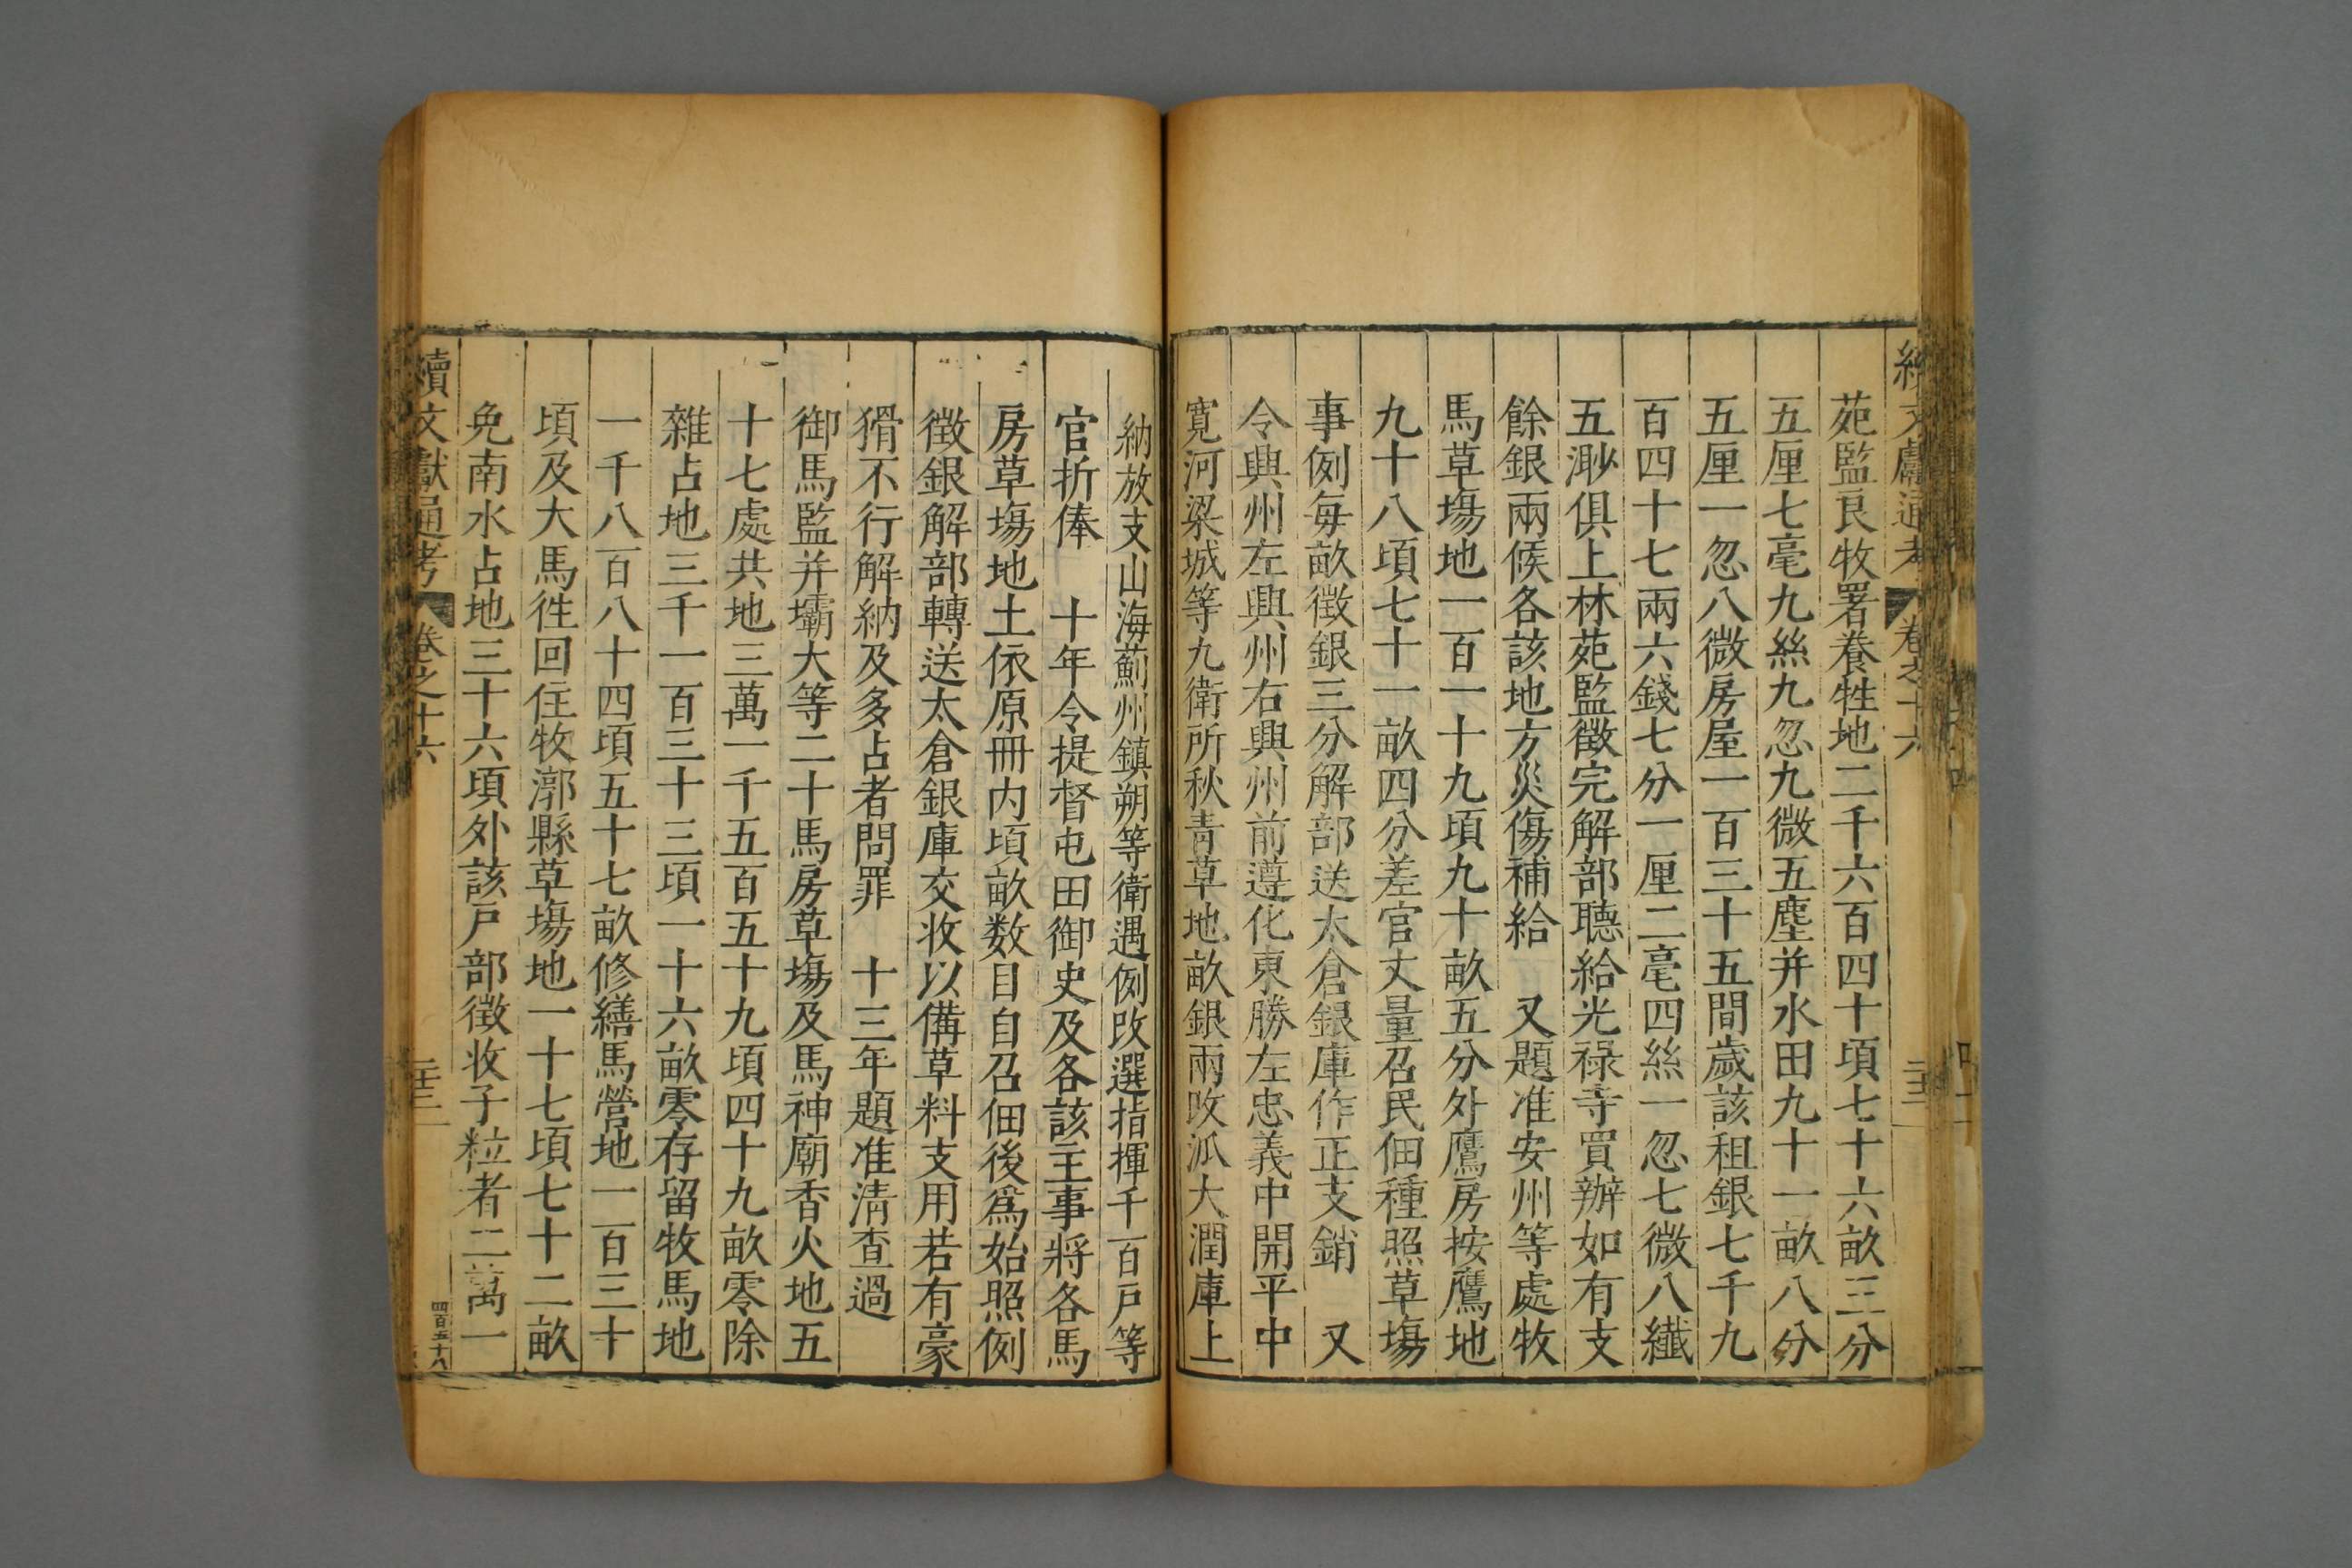 續文獻通考 卷之十六
苑監良牧署養牲地二千六百四十頃七十六畝三分
五厘七毫九絲九忽九微五塵并水田九十一畝八分
五厘一忽八微房屋一百三十五間歲該租銀七千九
百四十七兩六錢七分一厘二毫四絲一忽七微八纖
五渺俱上林苑監徵完解部聽給光祿寺買辦如有支
餘銀兩候各該地方災傷補給　又題准安州等處牧
馬草塲地一百一十九頃九十畝五分外鷹房按鷹地
九十八頃七十一畝四分差官丈量召民佃種照草塲
事例每畝徵銀三分解部送太倉銀庫作正支銷　又
令興州左興州右興州前遵化東勝左忠義中開平中
寬河梁城等九衛所秋青草地畝銀兩改派大潤庫上
納放支山海薊州鎮朔等衛遇例改選指揮千百戶等
官折俸　十年令提督屯田御史及各該主事將各馬
房草塲地土依原冊内頃畝数目自召佃後爲始照例
徵銀解部轉送太倉銀庫交收以備草料支用若有豪
猾不行解納及多占者問罪　十三年題准清查過
御馬監并壩大等二十馬房草塲及馬神廟香火地五
十七處共地三萬一千五百五十九頃四十九畝零除
雜占地三千一百三十三頃一十六畝零存留牧馬地
一千八百八十四頃五十七畝修繕馬營地一百三十
頃及大馬徃回住牧漷縣草塲地一十七頃七十二畝
免南水占地三十六頃外該戶部徵收子粒者二萬一
續文獻通考 卷之十六
四百五十八